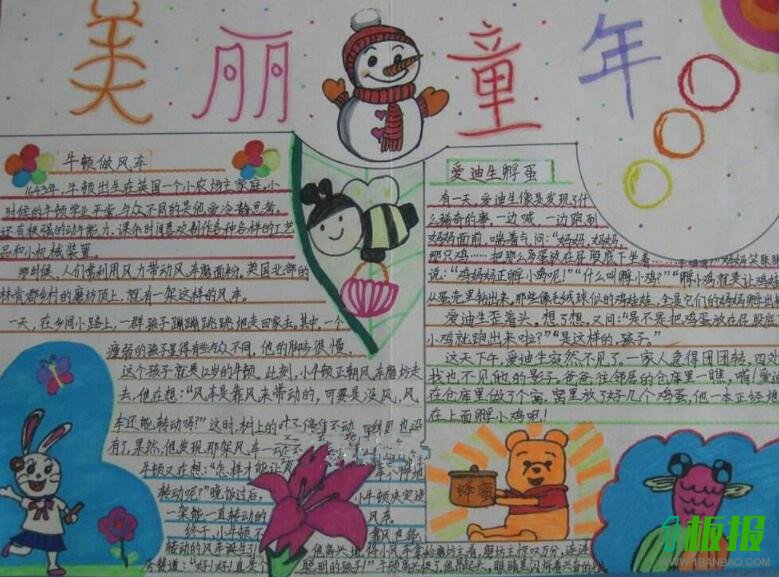 美丽童年
牛顿做风车
1643年,牛顿出生在英国一个小农场主家庭。小
时候的牛顿学业平常,与众不同的是他爱冷静思考,
还有极强的动手能力。课余时间喜欢制作各种各样的工艺
品和小机械装置。
那时候,人们常利用风力带动风车磨面粉,英国北部的
林肯郡乡村的磨坊顶上,就有一架这样的风车。
一天,在乡间小路上,一群孩子蹦蹦跳跳地走回家去。其中,一个
瘦弱的孩子显得有些与众不同,他的脚步很慢。
这个孩子就是12岁的牛顿。此刻,小牛顿正朝风车磨坊走
去,他在想:“风车是靠风来带动的,可要是没风,风
车还能转动吗?”这时,树上的
有了。果然,他发现那架风车一动
牛顿又在想:“怎样才能让
转动呢?”晚饭过后,小牛顿决定造
一架能一直转动的风车。
终于,小牛顿不靠风也能
转动的风车诞生
爱迪生孵蛋
有一天,爱迪生像是发现了什
么稀奇的事,一边喊,一边跑到
妈妈面前,喘着气问:“妈妈,妈妈,
那只鸡……把那么多蛋放在屁股底下坐着……妈妈笑眯眯
说:“鸡妈妈正孵小鸡呢!”“什么叫孵小鸡?”“孵小鸡就是让鸡娃娃
从蛋壳里钻出来,那些像毛绒球似的鸡娃娃,全是它们的妈妈孵出
爱迪生歪着头,想了想,又问:“是不是把鸡蛋放在屁股底下
小鸡就跑出来啦?”“是这样的,孩子。”
这天下午,爱迪生突然不见了。一家人急得团团转,四处
找也不见他的影子。爸爸往邻居的仓库里一瞧,嗬!爱迪生
在仓库里做了个窝,窝里放了好几个鸡蛋,他一本正经地
在上面孵小鸡呢!
蜂蜜
板报
WWW.1BANBAO.COM